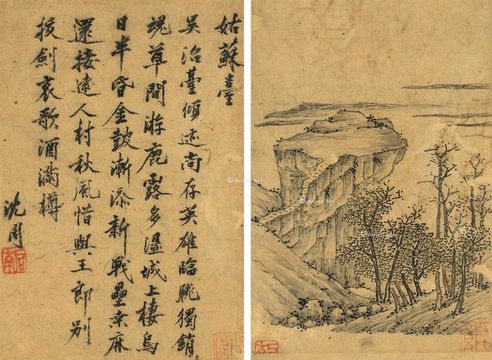 姑蘇臺
吳沼臺傾迹尚存英雄臨眺獨銷
魂草間游鹿露多濕城上棲烏
日半昏金鼓漸添新戰壘桑麻
還接遠人村秋風惜與王郎別
拔劍哀歌酒滿樽
沈周